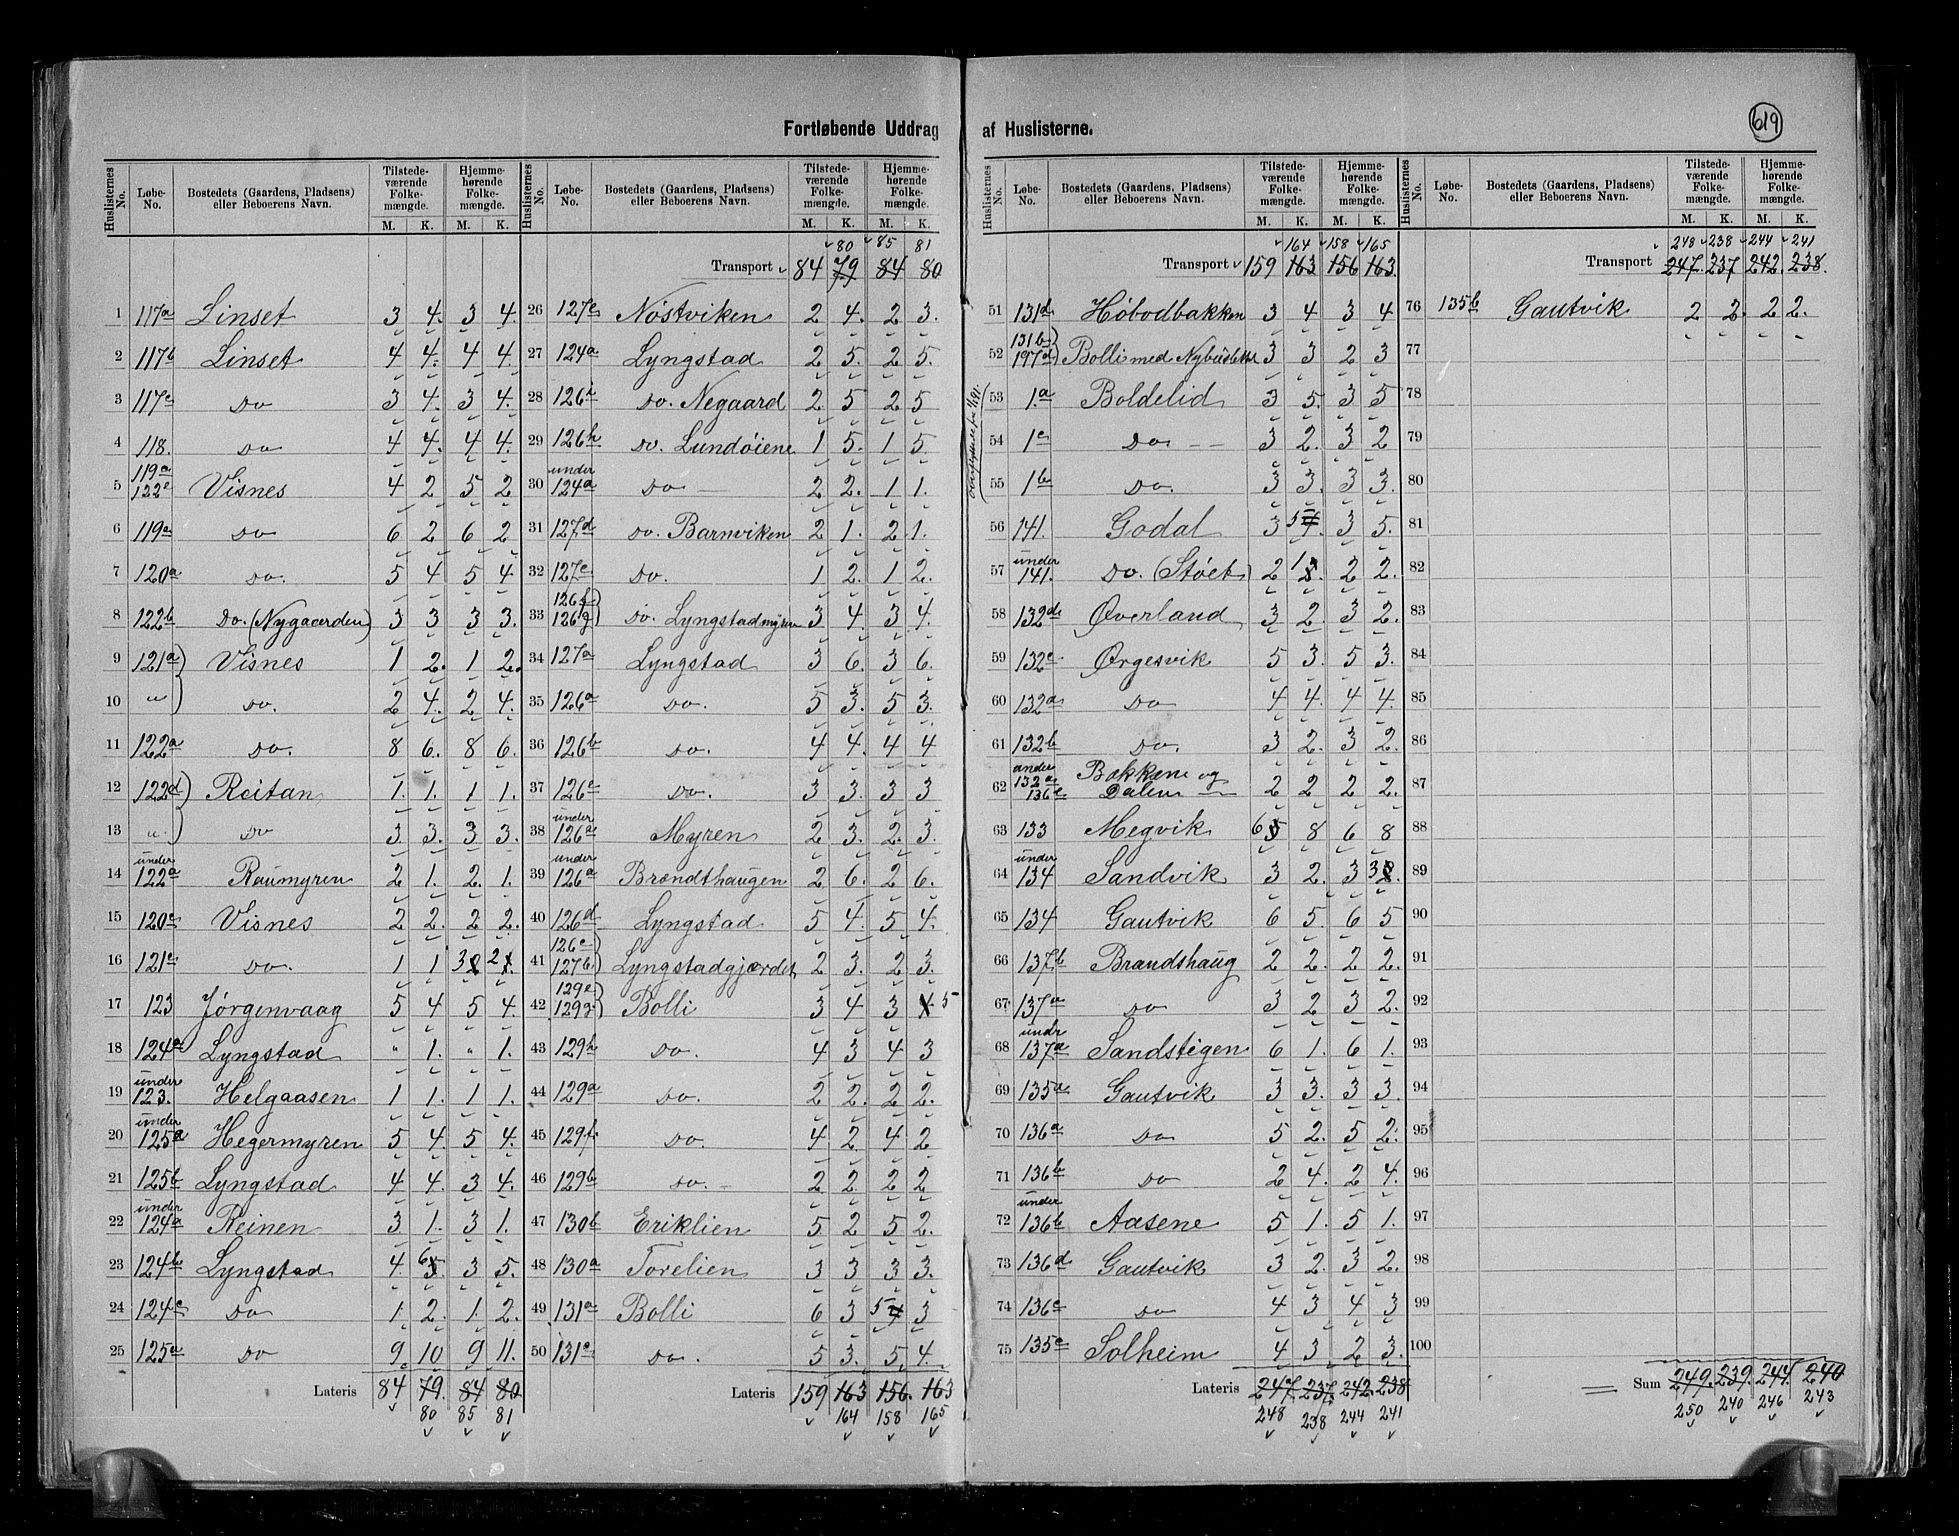 Fortløbende Uddrag af Huslisterne.
619
Huslisternes No. | Løbe-No. | Bostedets (Gaardens, Pladsens) eller Beboerens Navn. | Tilstedeværende Folkemængde. M. K. | Hjemmehørende Folkemængde. M. K.
1 117a Linset 3 4. 3 4.
2 117b Linset 4 4. 4 4.
3 117c Do 3 4. 3 4.
4 118. Do 4 4. 4 4.
5 119a 122e Visnes 4 2 5 2
6 119a Do 6 2 6 2
7 120a Do. 5 4 5 4
8 122b Do. (Nygaarden) 3 3 3 3.
9 121a Visnes 1 2. 1 2.
10 " Do. 2 4. 2 4.
11 122a Do. 8 6. 8 6.
12 122d Reitan 1. 1. 1 1.
13 " Do 3 3. 3 3.
14 under 122a Raumyren 2 1. 2. 1.
15 120c Visnes 2 2. 2 2.
16 121c Do. 1 1 3 2
17 123 Jørgenvaag 5 4 5 4.
18 124a Lyngstad " 1. " 1.
19 under 123. Helgaasen 1 1. 1 1.
20 under 125a Hegermyren 5 4 5 4.
21 125b Lyngstad 4 4. 3 4.
22 under 124a Reinen 3 1. 3 1.
23 124b Lyngstad 4. 6 5 3 5.
24 124c Do 1. 2. 1. 2.
25 125a Do 9 10 9 11.
Lateris 84 79. 84 80
80 85 81
80 85 81
Transport 84 79 84 80
26 127c Nøstviken 2 4. 2 3.
27 124a Lyngstad 2 5. 2 5.
28 126i Do. Negaard 2 5 2 5
29 126h Do. Lundøiene 1 5. 1 5
30 under 124a Do 2 2. 1 1.
31 127d Do. Barnviken 2 1. 2 1.
32 127e Do. 1 2. 1 2.
33 126f 126g Do. Lyngstadmyren 3 4. 3 4.
34 127a Lyngstad 3 6. 3 6.
35 126a Do. 5 3. 5 3.
36 126b Do. 4 4. 4 4
37 126c Do. 3 3. 3 3
38 under 126a Myren 2 3. 2. 3.
39 under 126a Brændthaugen 2 6. 2 6.
40 126d Lyngstad 5 4. 5 4.
41 126e 127b Lyngstadgjærdet 2 3. 2 3.
42 129e 129g Bolli 3 4 3 4 5
43 129h Do. 4 3 4 3
44 129a Do. 2 2. 2 2.
45 129f Do. 4 2 4 2
46 129b Do. 2 2 2 2
47 130b Eriklien 5 2 5 2.
48 130a Torelien 3 3 3 3.
49 131a Bolli 6 3 5 4 3
50 131c Do. 5 3. 5. 4.
Lateris 159 163 156. 163
164 158 165
164 158 165
Transport 159 163 156 163.
51 131d Høbodbakken 3 4 3 4
52 131b 197d Bolli med Nybúslettet 3 3 2 3
53 1.a Boldelid 3 5. 3 5
54 1c Do 3 2. 3 2
55 1b Do. 3 3. 3 3.
56 141. Godal 3 5 4 3 5.
57 under 141. Do. (Støet) 2 1 2 2.
58 132d Øverland 3 2. 3 2.
59 132c Ørgesvik 5 3. 5 3.
60 132a Do 4 4. 4 4.
61 132b Do. 3 2. 3 2.
62 under 132a 136c Bakkene og Dalen 2 2 2 2.
63 133 Megvik 6 5 8 6 8
64 under 134 Sandvik 3 2. 3 3 2.
65 134 Gautvik 6 5. 6 5
66 137b Brandshaug 2 2. 2 2.
67 137a Do 3 2 3 2.
68 under 137a Sandstigen 6 1. 6 1.
69 135a Gautvik 3 3. 3 3.
70 136a Do 5 2. 5 2.
71 136b Do 2 4. 2 4.
72 under 136b Aasene 5 1. 5 1.
73 136d Gautvik 3 2. 3 2.
74 136c Do 4 3 4 3
75 135c Solheim 4 3 2 3.
Lateris 247. 237. 242. 238.
248 238 244 241
248 238 244 241
Transport 247. 237 242. 238.
76 135b Gautvik 2 2. 2 2.
77
78
79
80
81
82
83
84
85
86
87
88
89
90
91
92
93
94
95
96
97
98
99
100
Sum 249. 239. 244. 240
250 240 246 243